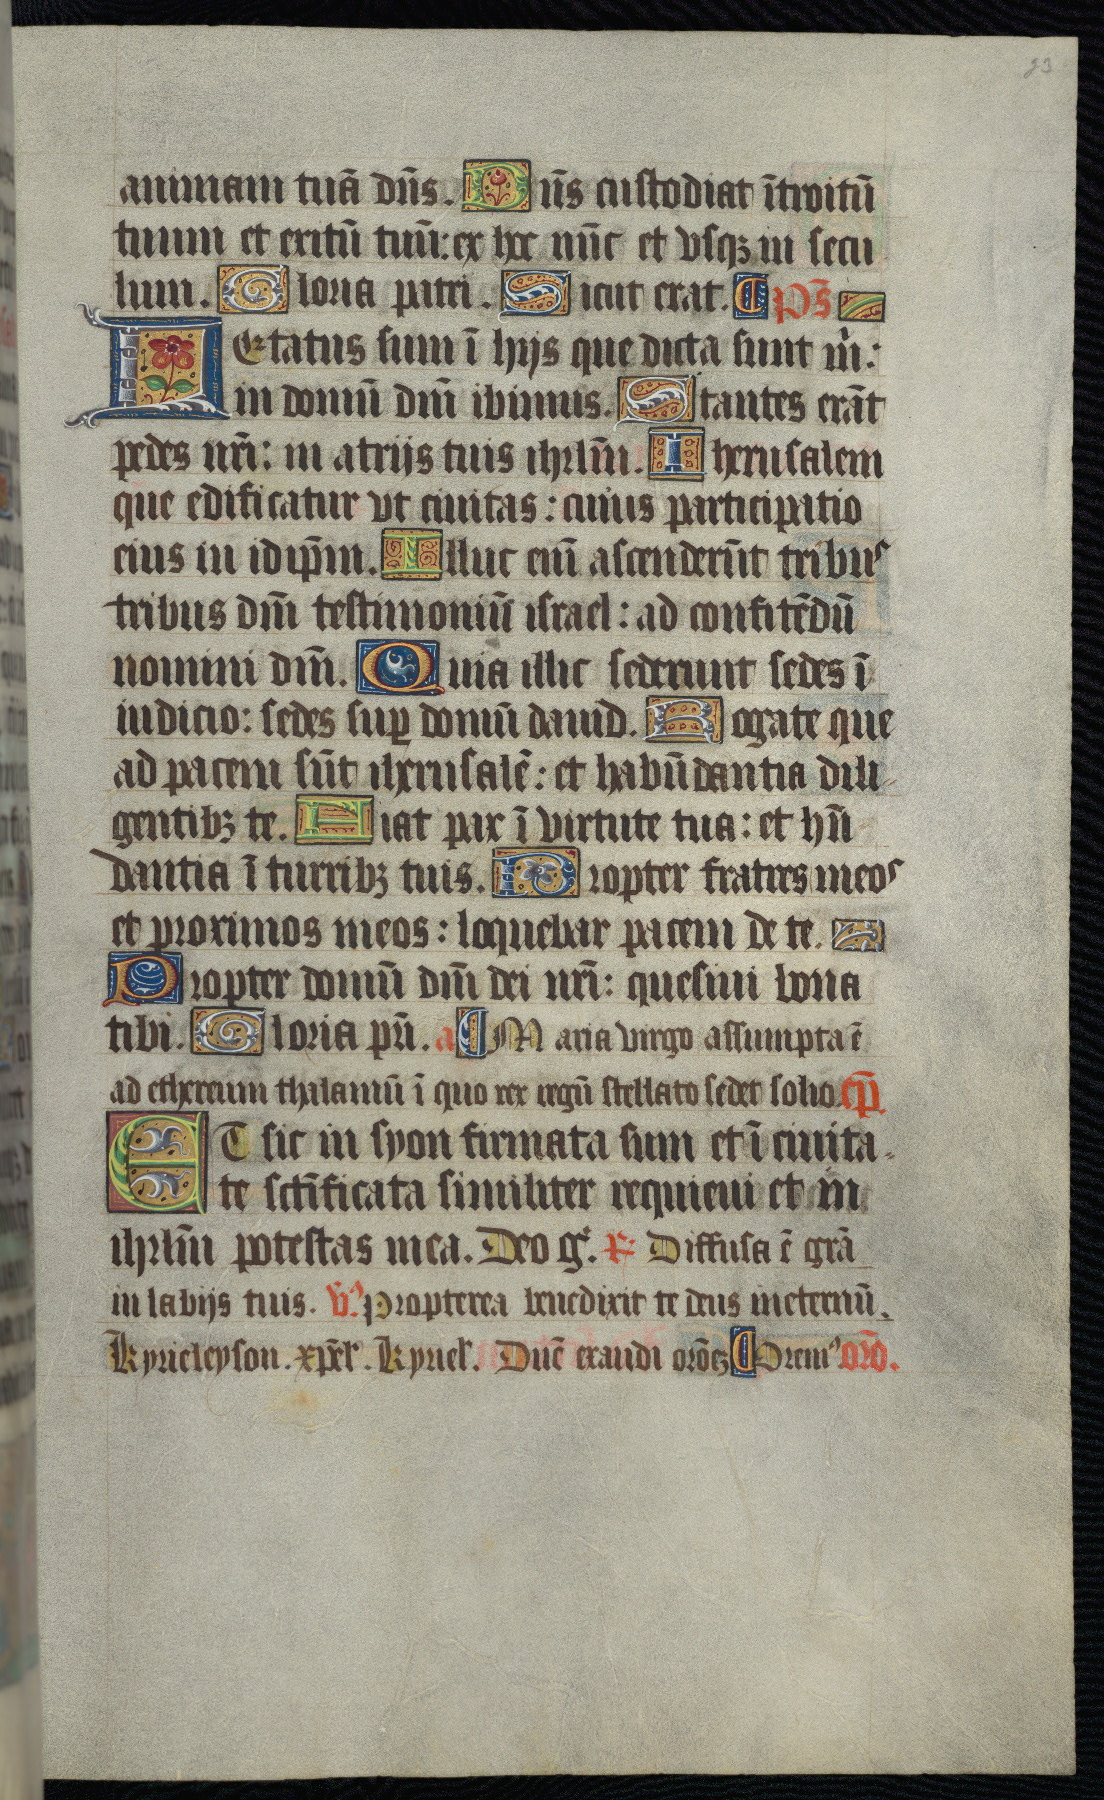 23
animam tuā dn̄s. Dn̄s custodiat ītroitū
tuum et exitū tuū: ex hoc nūc et vsqꝫ in secu
lum. Gloria patri. Sicut erat. ps̄
LEtatus sum ī hijs que dicta sunt m̄:
in domū dn̄i ibimus. Stantes erāt
pedes nr̄i: in atrijs tuis ihrlm̄. Iherusalem
que edificatur vt ciuitas: cuius participatio
eius in idip̄m. Illuc eni̅ ascenderūt tribus
tribus dn̄i testimoniū israel: ad confitēdū
nomini dn̄i. Quia illic sederunt sedes ī
iudicio: sedes suꝑ domū dauid. Rogate que
ad pacem sūt iherusalē: et habūdantia dili
gentibꝫ te. Fiat pax ī virtute tua: et hn̄
dantia ī turribꝫ tuis. Propter fratres meos
et proximos meos: loquebar pacem de te.
Propter domū dn̄i dei nr̄i: quesiui bona
tibi. Gloria pr̄i. a Maria virgo assumpta ē
ad ethereum thalamū ī quo rex regū stellato sedet solio. cp̄.
ET sic in syon firmata sum et ī ciuita-
te sct̄ificata similiter requieui et in
ihrlm̄ potestas mea. Deo gr̄. R Diffusa ē grā
in labijs tuis. v̄. Propterea benedixit te deus ineternū.
Kyrieleyson. xp̄el'. Kyriel'. Dn̄e exaudi orōeꝫ Orem' orō.